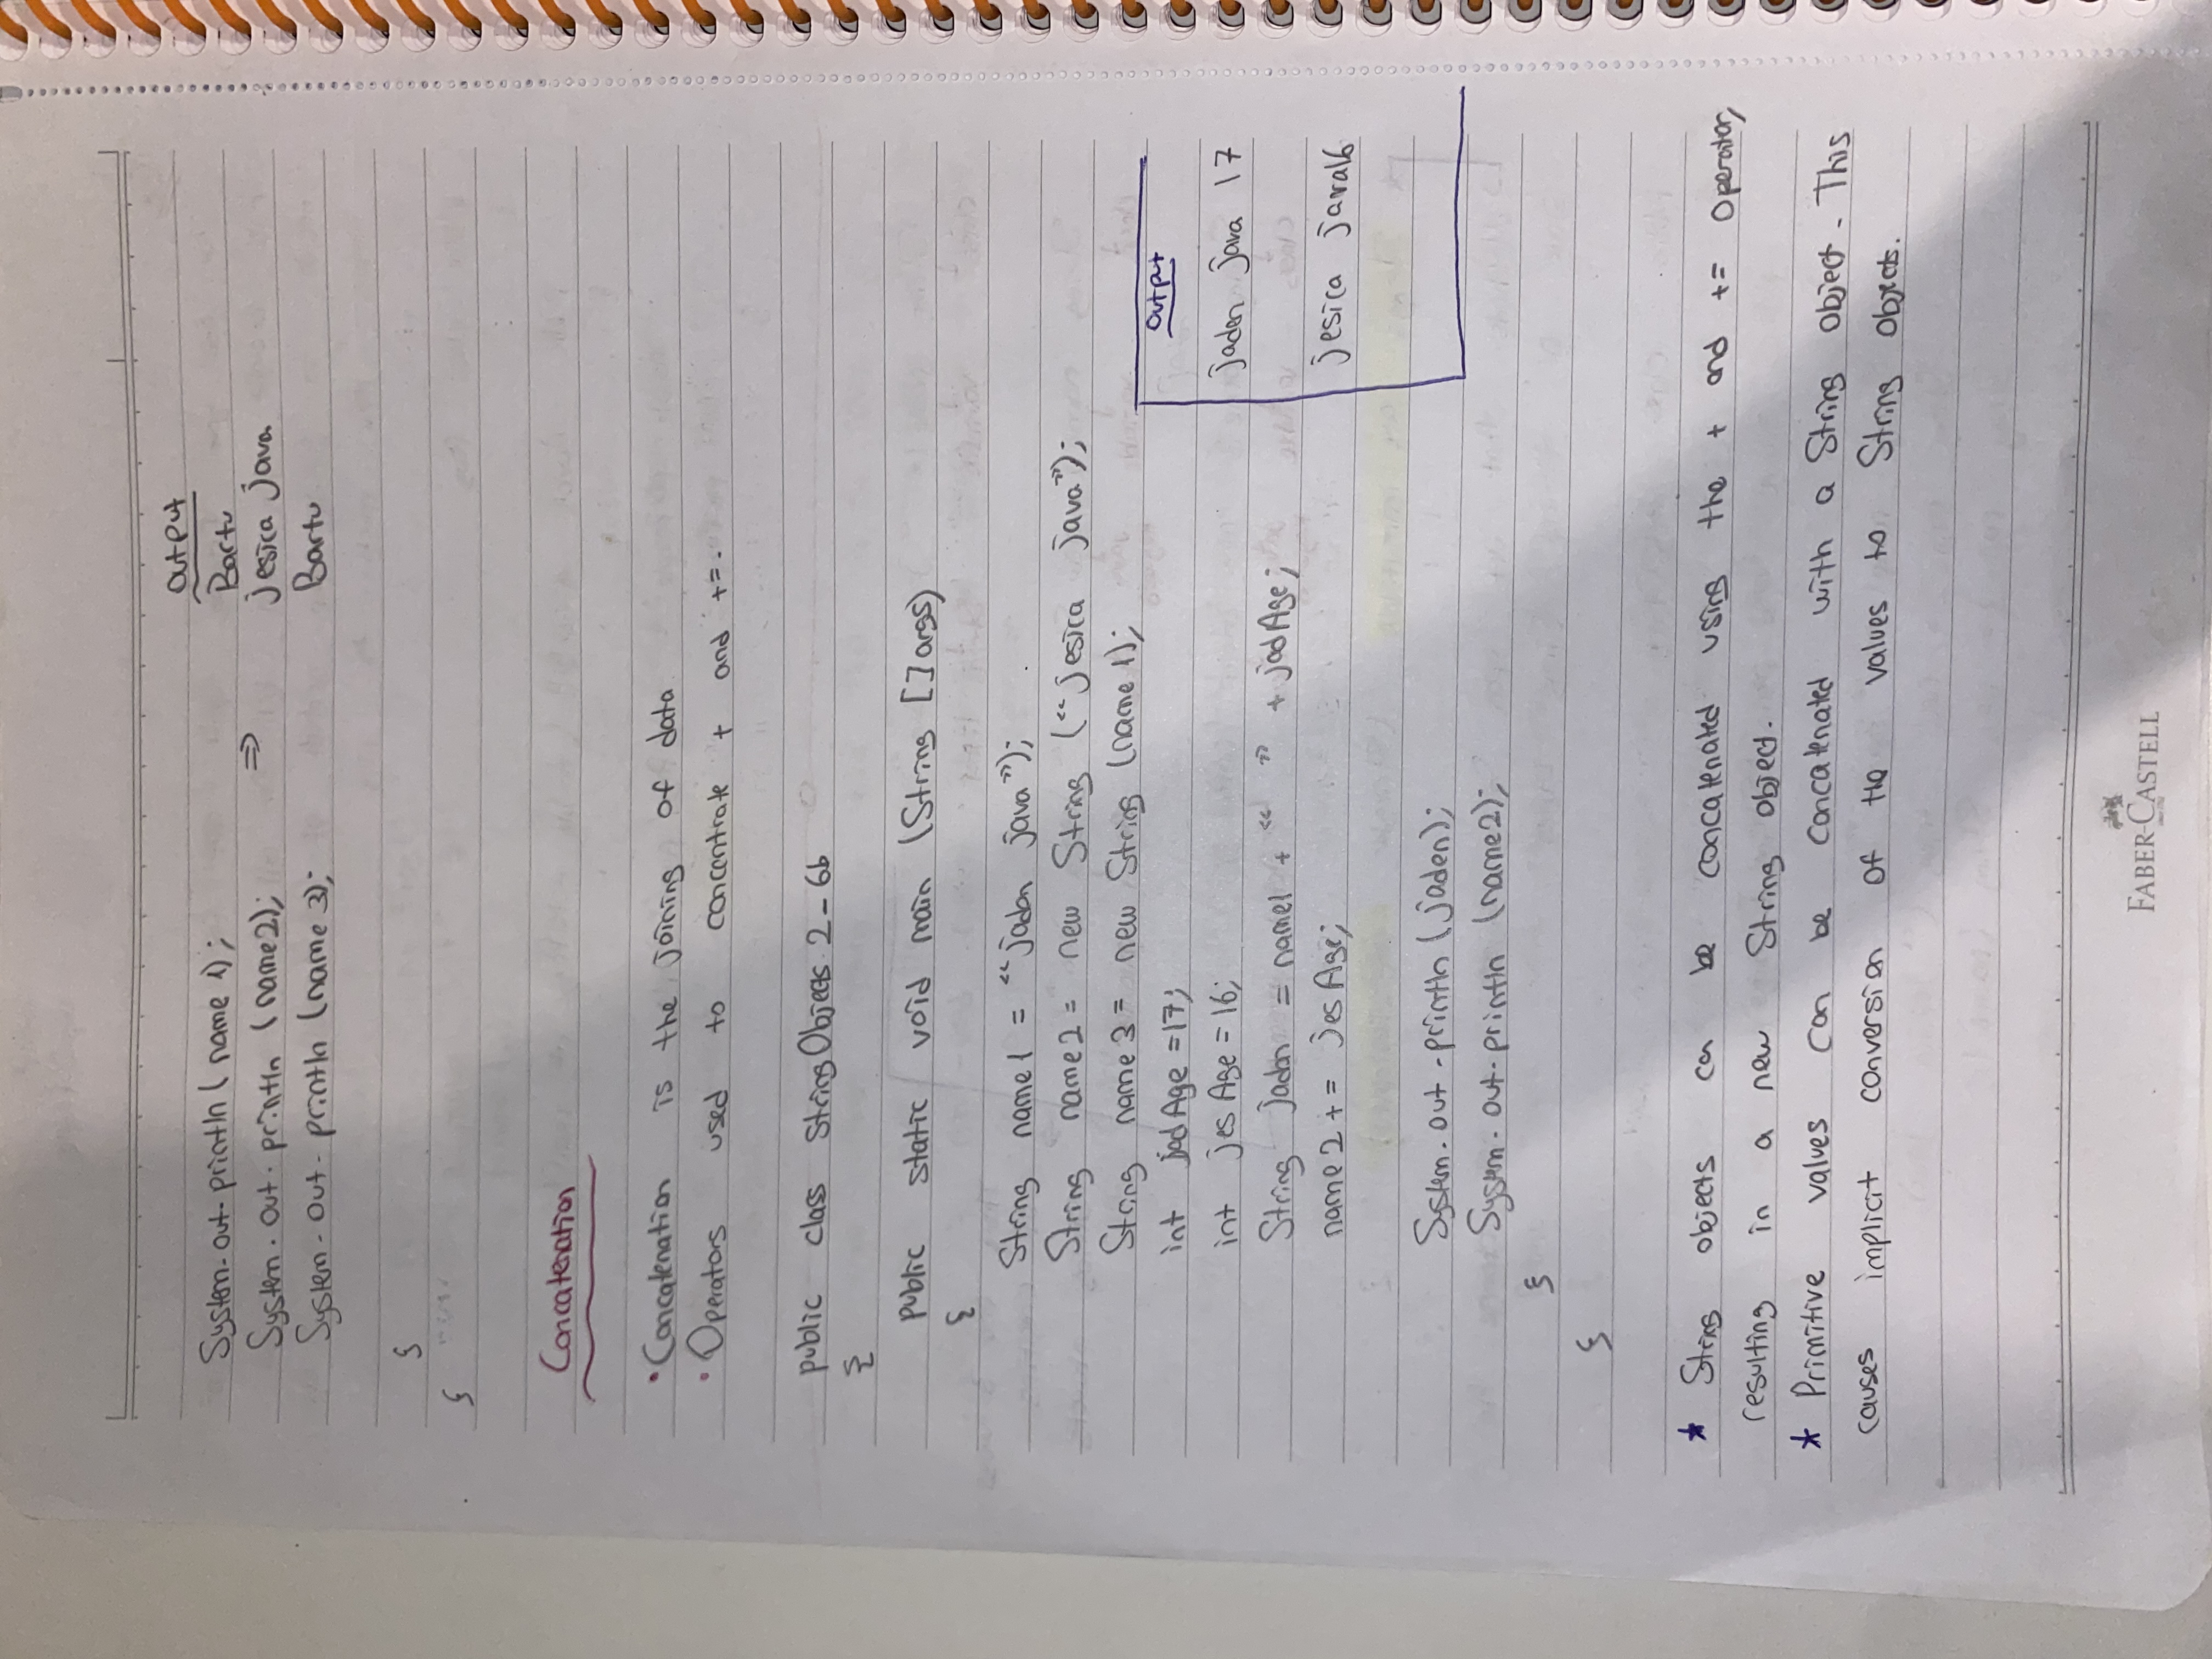 output
System.out.println ( name 1); ⇒ Bartu
System.out.println (name2); jesica java
System.out.println (name 3); Bartu
}
}
Concatenation
• Concatenation is the joining of data
• Operators used to concentrate + and +=.
public class StringObjects 2-6b
{
public static void main (String [] args)
{
String name1 = "jadon java");
String name2 = new String ("jesica java");
String name3 = new String (name 1);
int jadAge =17;
int jesAge = 16;
String jadon = name1 + " " + jadAge;
name2 += jesAge;
output
jaden java 17
jesica java16
System.out.println (jaden);
System.out.println (name2);
}
}
★ String objects can be concatenated using the + and += operator,
resulting in a new String object.
★ Primitive values can be concatenated with a String object. This
causes implicit conversion of the values to String objects.
FABER-CASTELL